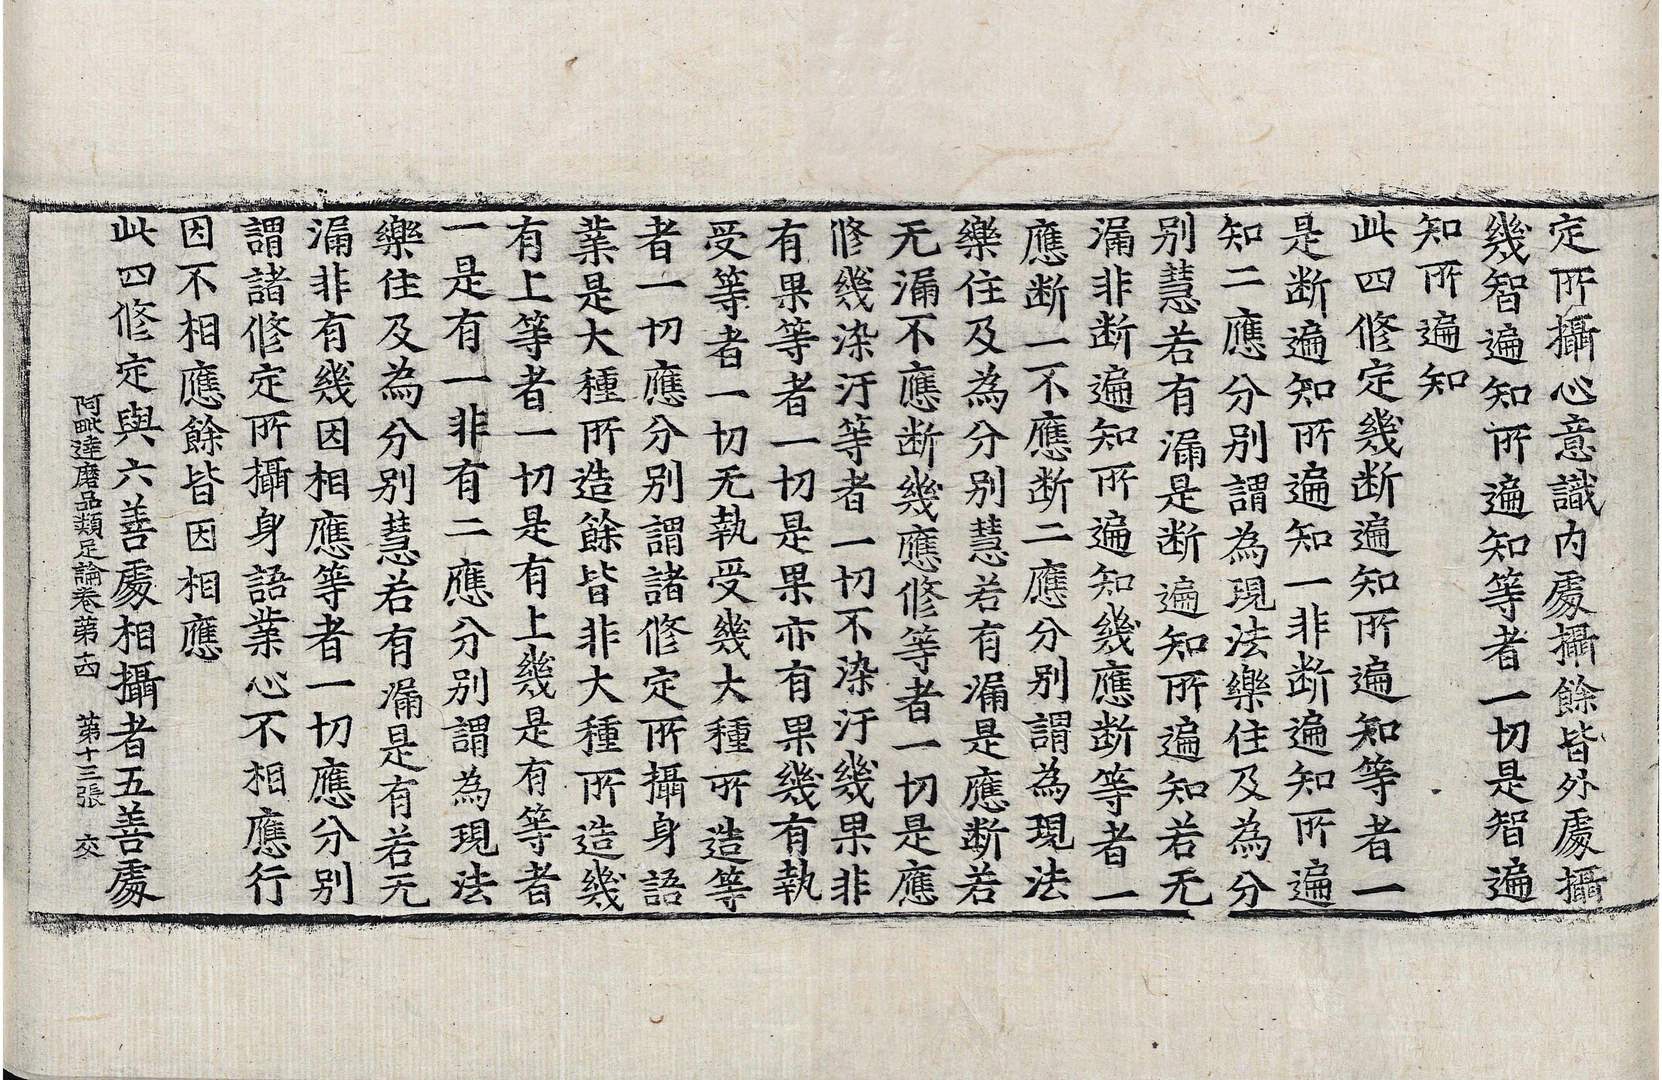 定所攝心意識內處攝餘皆外處攝
幾智遍知所遍知等者一切是智遍
知所遍知
此四修定幾断遍知所遍知等者一
是断遍知所遍知一非断遍知所遍
知二應分別謂為現法樂住及為分
別慧若有漏是断遍知所遍知若无
漏非断遍知所遍知幾應断等者一
應断一不應断二應分別謂為現法
樂住及為分別慧若有漏是應断若
无漏不應断幾應修等者一切是應
修幾染汙等者一切不染汙幾果非
有果等者一切是果亦有果幾有執
受等者一切无執受幾大種所造等
者一切應分別謂諸修定所攝身語
業是大種所造餘皆非大種所造幾
有上等者一切是有上幾是有等者
一是有一非有二應分別謂為現法
樂住及為分別慧若有漏是有若无
漏非有幾因相應等者一切應分別
謂諸修定所攝身語業心不相應行
因不相應餘皆因相應
此四修定與六善處相攝者五善處
阿毗達磨品類足論卷第十四 第十三張 交